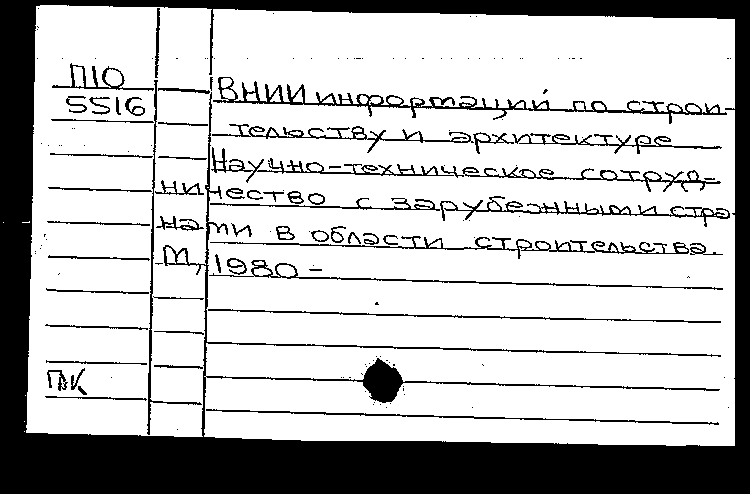 П10
5516
ВНИИ информации по строи-
тельству и архитектуре
Научно-техническое сотруд-
ничество с зарубежными стра
нами в области строительства.
М, 1980 -
ПАК